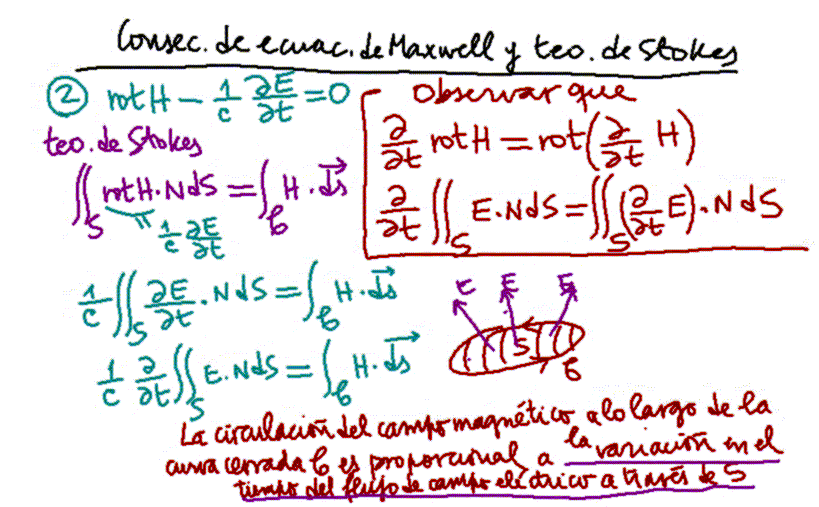 Consec. de ecuac. de Maxwell y teo. de Stokes
② rot H − 1/c ∂E/∂t = 0
teo. de Stokes
∬_S rot H · N dS = ∫_C H · ds→
= 1/c ∂E/∂t
1/c ∬_S ∂E/∂t · N dS = ∫_C H · ds→
1/c ∂/∂t ∬_S E · N dS = ∫_C H · ds→
Observar que
∂/∂t rot H = rot(∂/∂t H)
∂/∂t ∬_S E · N dS = ∬_S (∂/∂t E) · N dS
E E E
S
C
La circulación del campo magnético a lo largo de la
curva cerrada C es proporcional a la variación en el
tiempo del flujo de campo eléctrico a través de S